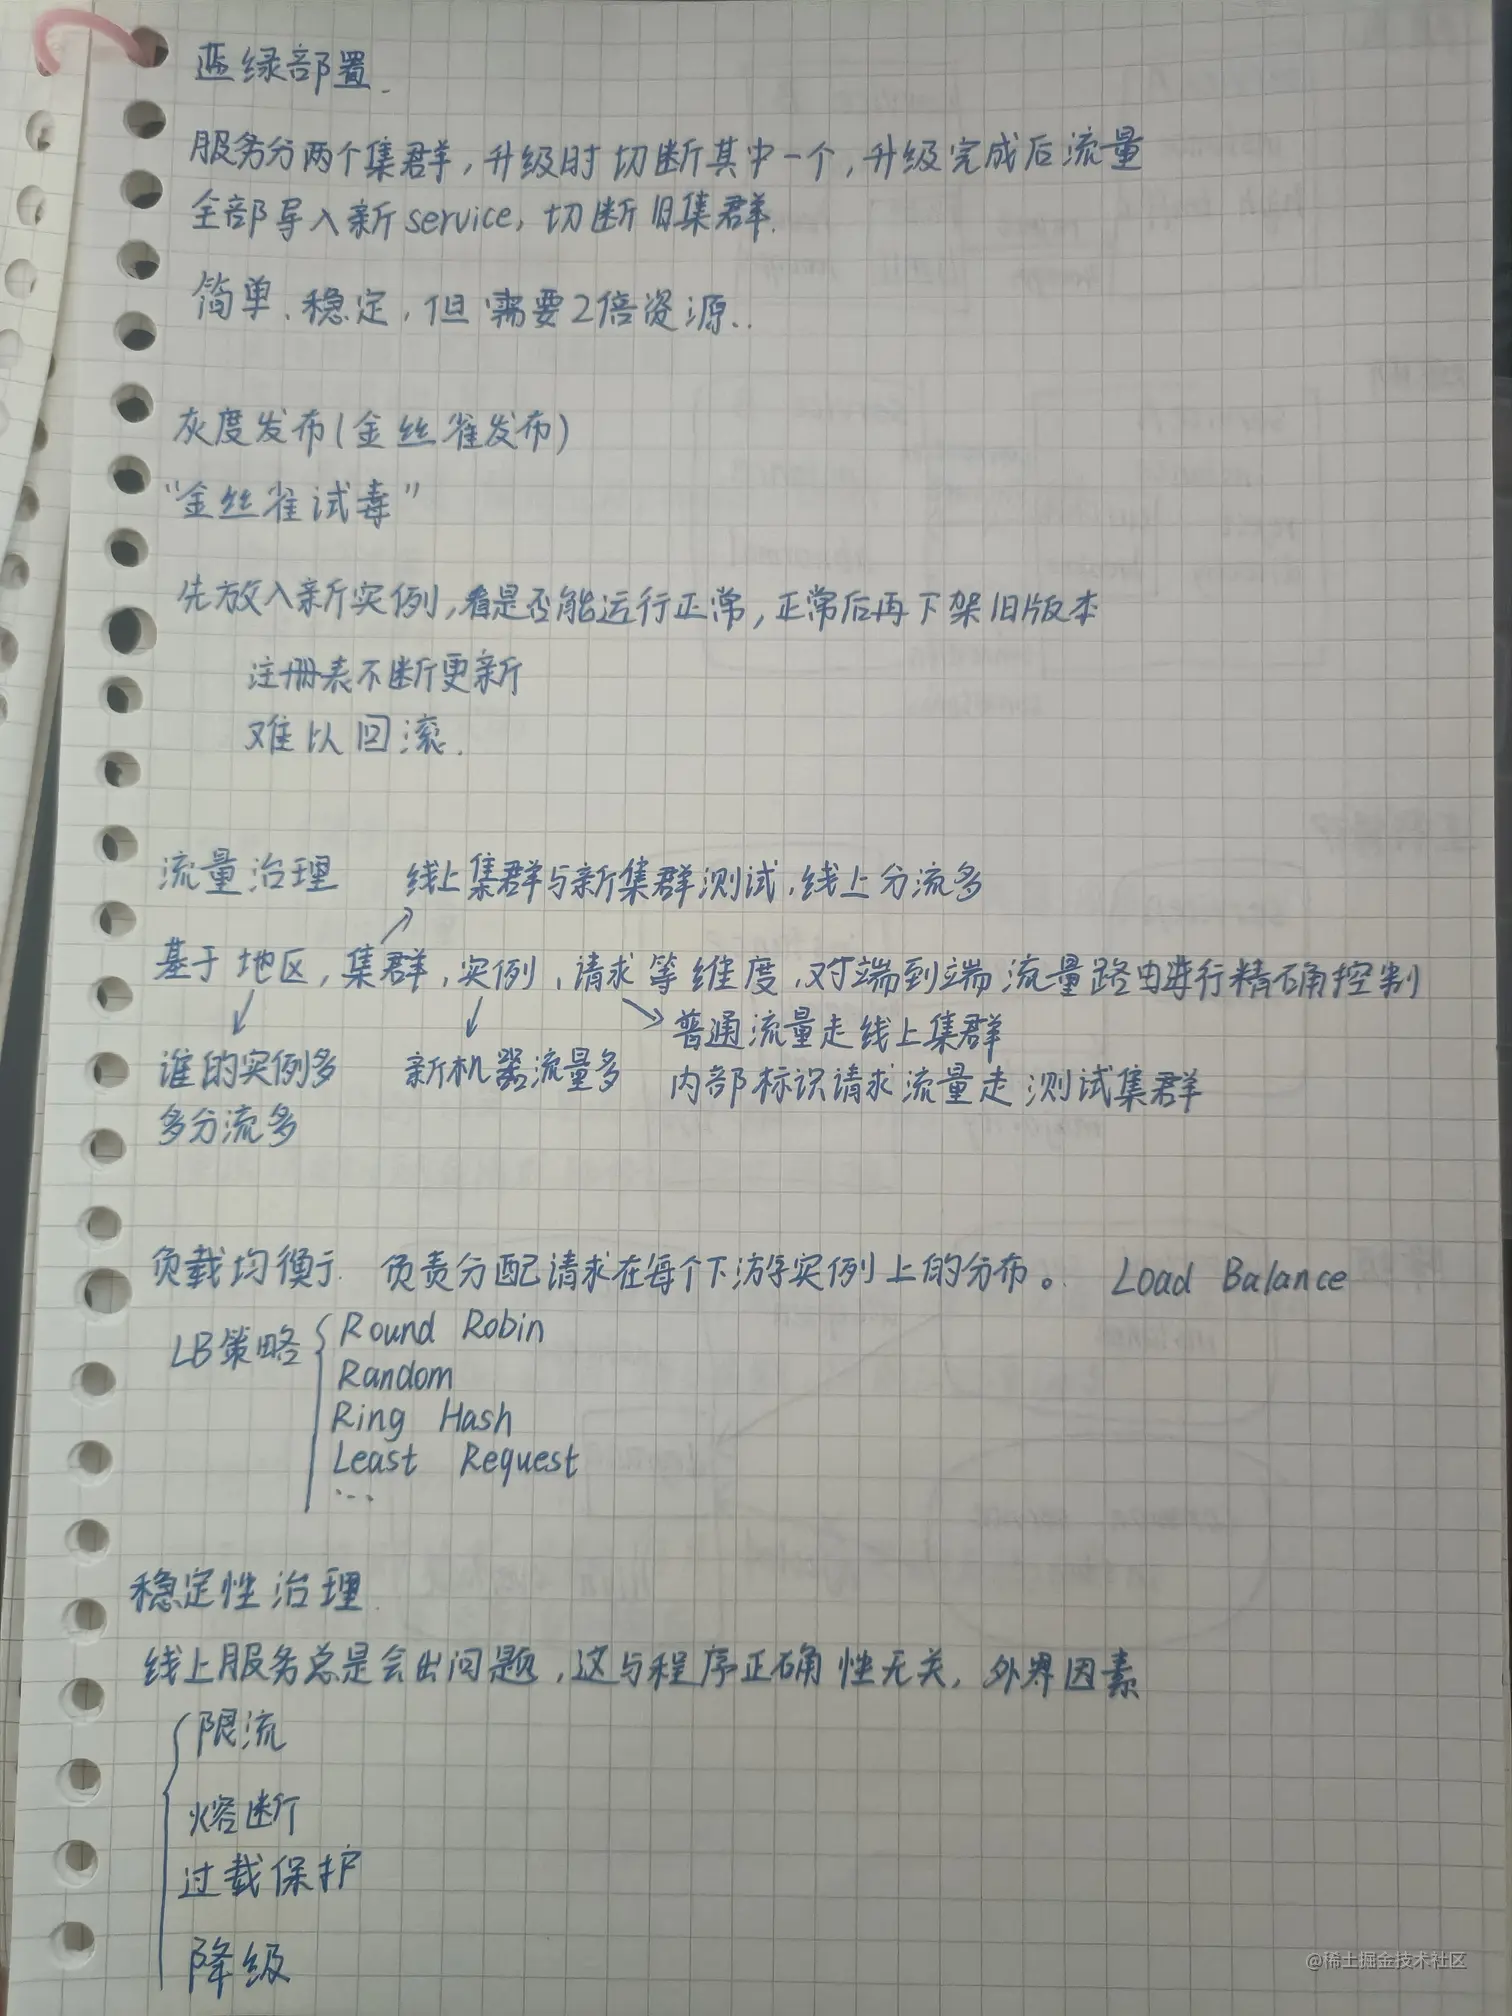 蓝绿部署.
服务分两个集群，升级时切断其中一个，升级完成后流量
全部导入新service，切断旧集群.
简单、稳定，但需要2倍资源..
灰度发布(金丝雀发布)
“金丝雀试毒”
先放入新实例，看是否能运行正常，正常后再下架旧版本
注册表不断更新
难以回滚.
流量治理 线上集群与新集群测试，线上分流多
基于地区，集群，实例，请求等维度，对端到端流量路由进行精确控制
谁的实例多 新机器流量多 普通流量走线上集群
内部标识请求流量走测试集群
多分流多
负载均衡. 负责分配请求在每个下游实例上的分布。 Load Balance
LB策略 Round Robin
Random
Ring Hash
Least Request
...
稳定性治理.
线上服务总是会出问题，这与程序正确性无关，外界因素
限流
熔断
过载保护
降级
@稀土掘金技术社区